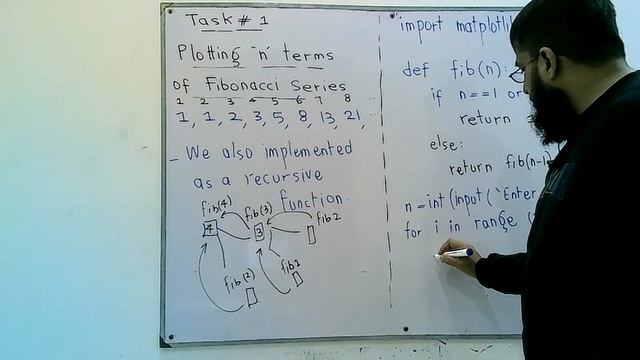 Task # 1
Plotting "n" terms
of Fibonacci Series
1 2 3 4 5 6 7 8
1, 1, 2, 3, 5, 8, 13, 21,
- We also implemented
as a recursive
function.
fib(4)
fib(3)
fib2
4
3
fib(2)
fib1
import matplotli
def fib(n):
if n==1 or
return
else:
return fib(n-1)
n=int(input("Enter
for i in range (